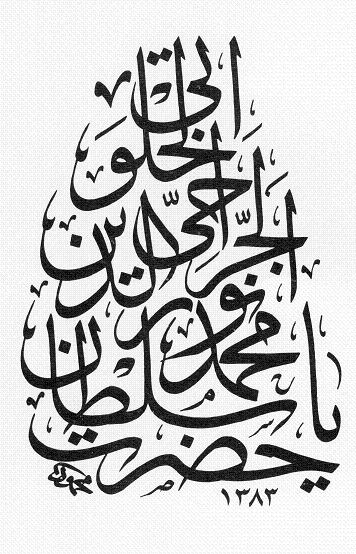 يا حضرت
سلطان
محمد نور الدين
الجرّاحى
الخلوتى
١٣٨٣